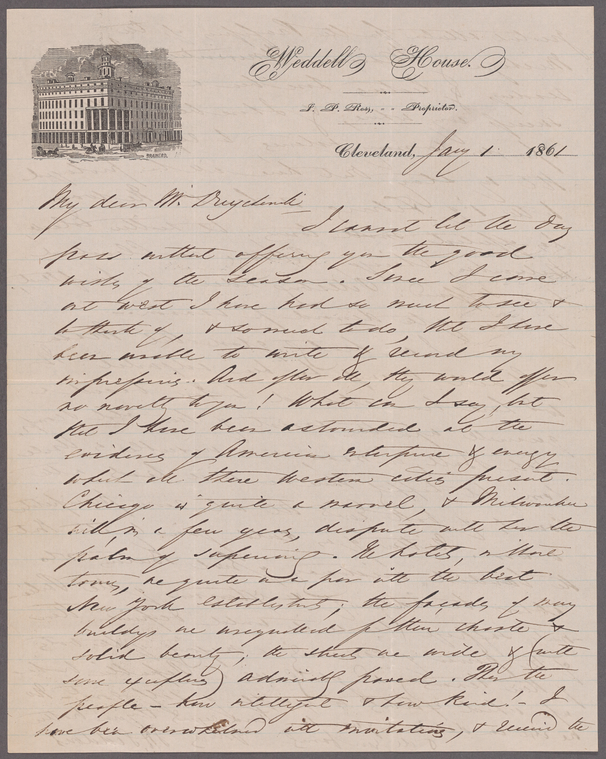 Weddell House.
J. P. Ross, - - Proprietor.
Cleveland, Jany 1 1861
My dear Mr. Duyckinck
I cannot let the day
pass without offering you the good
wishes of the season. Since I came
out west I have had so much to see &
to think of, & so much to do, that I have
been unable to write & record my
impressions. And after all, they would offer
no novelty to you! What can I say, but
that I have been astounded at the
evidences of American enterprise & energy
which all these western cities present.
Chicago is quite a marvel, & Milwaukee
will, in a few years, dispute with her the
palm of superiority. The hotels, in these
towns, are quite on a par with the best
New York establishments; the facades of many
buildings are unequalled for their chaste &
solid beauty; the streets are wide & (with
some exceptions) admirably paved. Then the
people - how intelligent & how kind! - I
have been overwhelmed with invitations, & received the